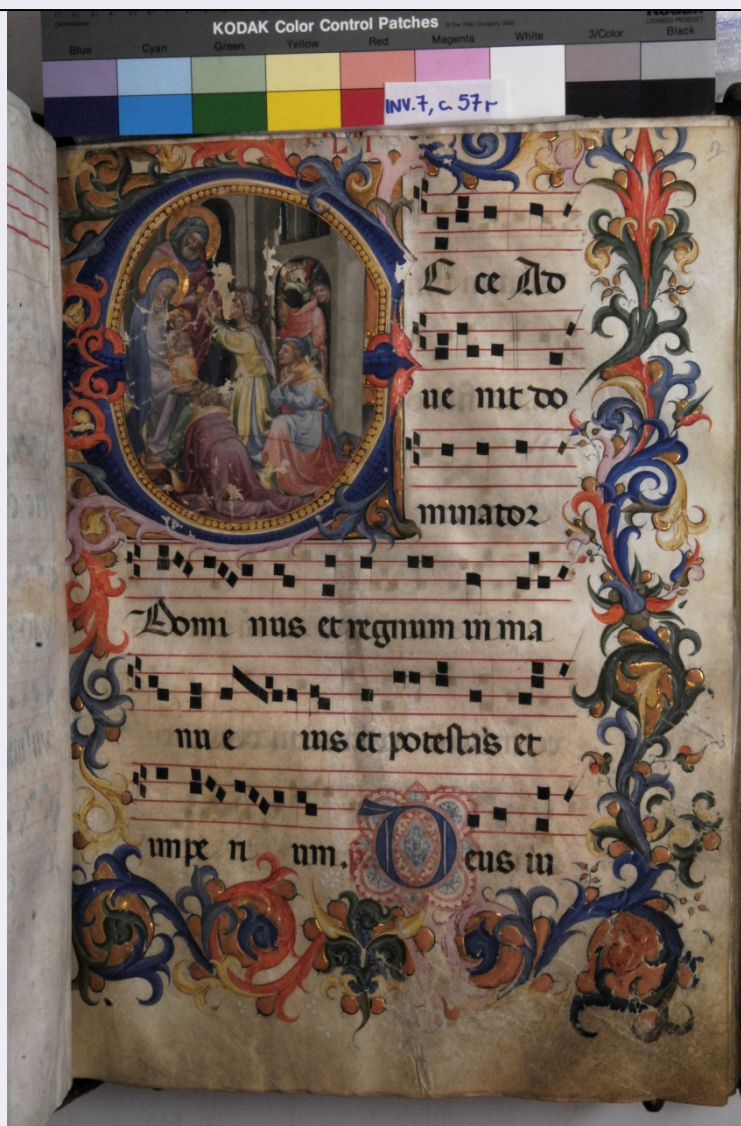 Kodak
LICENSED PRODUCT
KODAK Color Control Patches
Centimetres
Blue Cyan Green Yellow Red Magenta White 3/Color Black
INV. 7, c. 57r
E cce Ad
ue nit do
minator
Domi nus et regnum in ma
nu e ius et potestas et
impe ri um. Deus iu